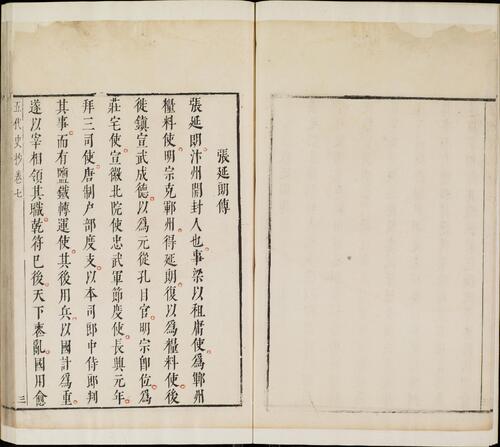 張延朗傳
張延朗汴州開封人也事梁以租庸使為鄆州
糧料使明宗克鄆州得延朗復以為糧料使後
徙鎮宣武成德以為元從孔目官明宗即位為
莊宅使宣徽北院使忠武軍節度使長興元年
拜三司使唐制戸部度支以本司郎中侍郎判
其事而有鹽鐵轉運使其後用兵以國計為重
遂以宰相領其職乾符已後天下喪亂國用愈
五代史抄卷七
三